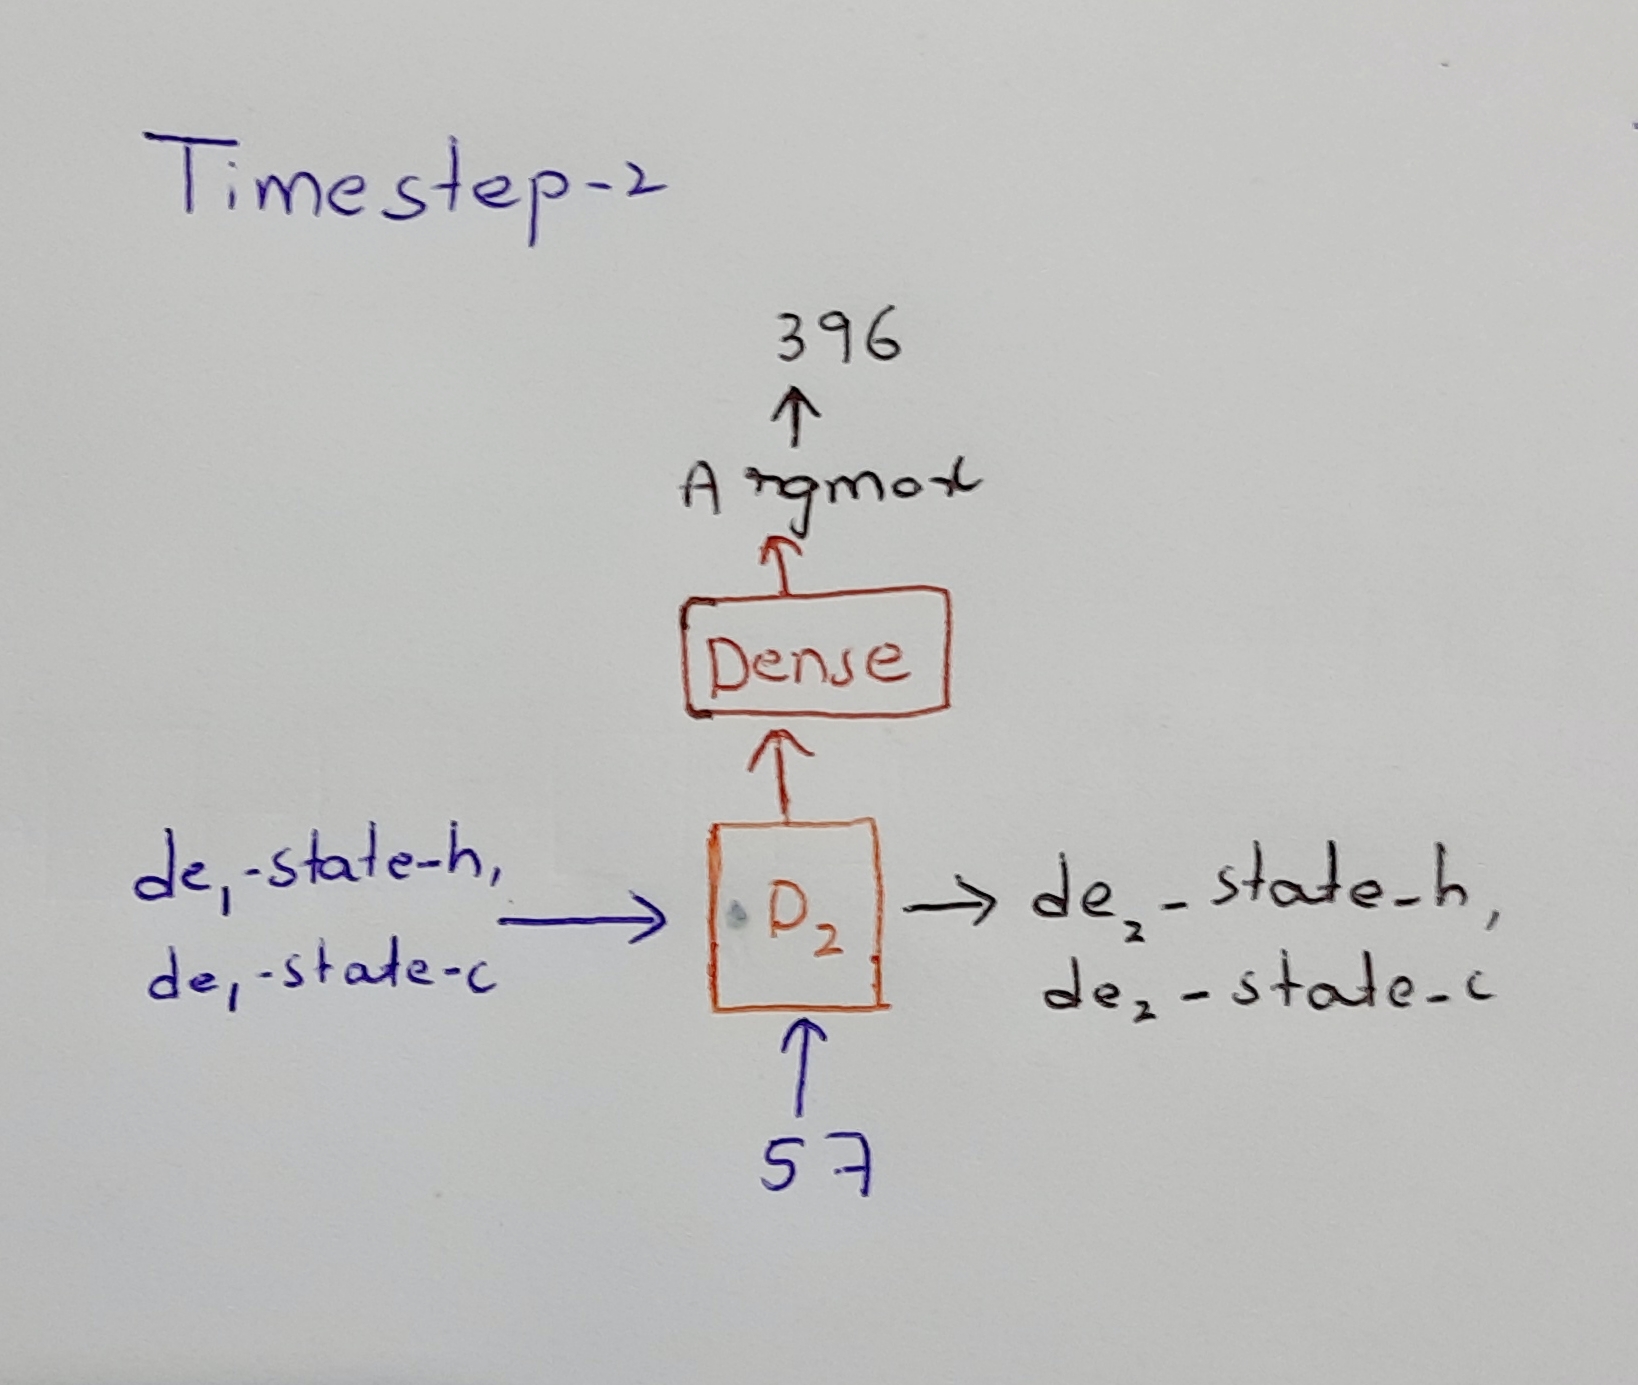 Timestep-2
396
Argmax
Dense
de₁-state-h,
de₁-state-c
D₂
de₂-state-h,
de₂-state-c
57